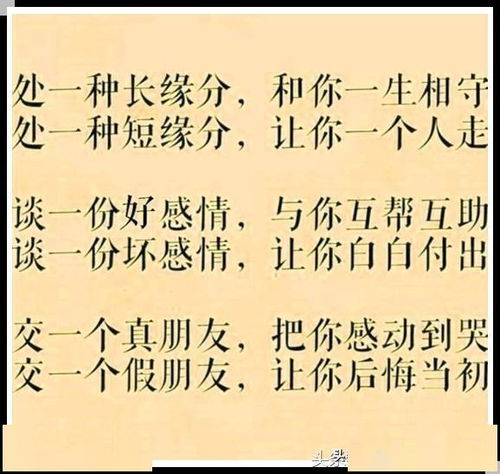 处一种长缘分，和你一生相守
处一种短缘分，让你一个人走
谈一份好感情，与你互帮互助
谈一份坏感情，让你白白付出
交一个真朋友，把你感动到哭
交一个假朋友，让你后悔当初
头条